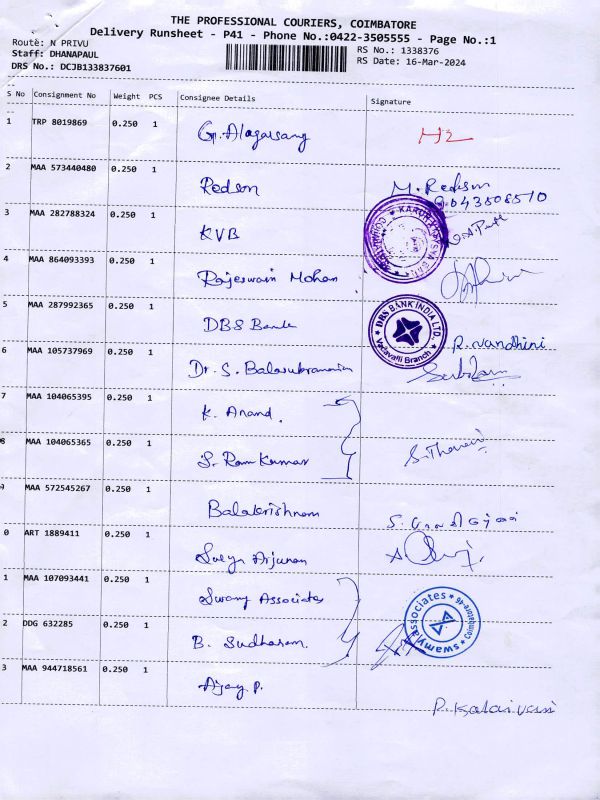 THE PROFESSIONAL COURIERS, COIMBATORE
Delivery Runsheet - P41 - Phone No.:0422-3505555 - Page No.:1
Route: N PRIVU
RS No.: 1338376
Staff: DHANAPAUL
RS Date: 16-Mar-2024
DRS No.: DCJB133837601
S No Consignment No Weight PCS Consignee Details Signature
1 TRP 8019869 0.250 1
2 MAA 573440480 0.250 1 Redson M. Redson
3 MAA 282788324 0.250 1 KVB
4 MAA 864093393 0.250 1 Rajeswain Mohan
5 MAA 287992365 0.250 1 DBS Bank R. Nandhini
DBS BANK INDIA LTD.
Vadavalli Branch
6 MAA 105737969 0.250 1 Dr. S. Balasubramanian
7 MAA 104065395 0.250 1 K. Anand
8 MAA 104065365 0.250 1 S. Ram Kumar
MAA 572545267 0.250 1 Balakrishnan
0 ART 1889411 0.250 1 Surya Arjunan
1 MAA 107093441 0.250 1 Swamy Associates
swamyassociates Coimbatore-46
2 DDG 632285 0.250 1 B. Sudharsam
3 MAA 944718561 0.250 1 Ajay P. P. Kalaivani